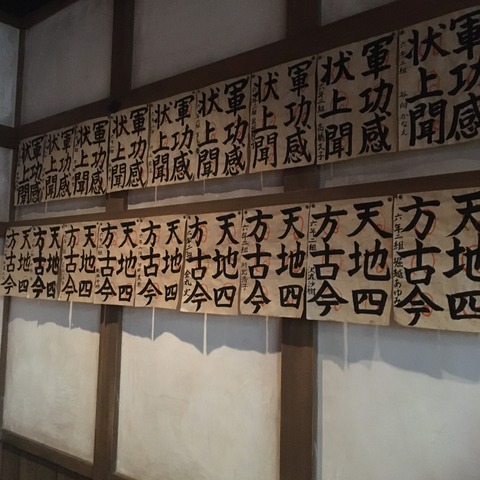 軍功感
状上聞
六年二組
軍功感
状上聞
軍功感
状上聞
軍功感
状上聞
軍功感
状上聞
軍功感
状上聞
軍功感
状上聞
軍功感
状上聞
軍功感
状上聞
天地四
方古今
六年二組 堀越あゆみ
天地四
方古今
天地四
方古今
天地四
方古今
天地四
方古今
天地四
方古今
天地四
方古今
天地四
方古今
天地四
方古今